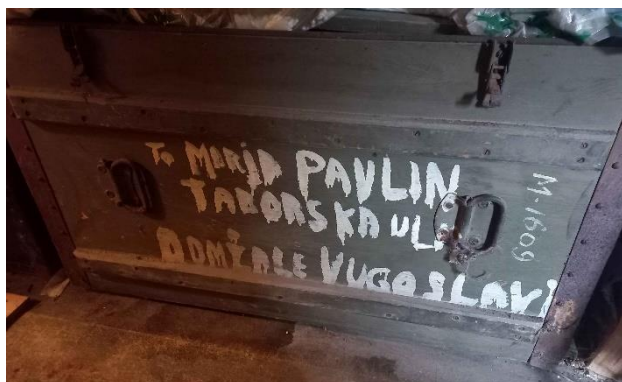 To MARIJA PAVLIN
TABORSKA UL
DOMŽALE YUGOSLAVI
M-1609